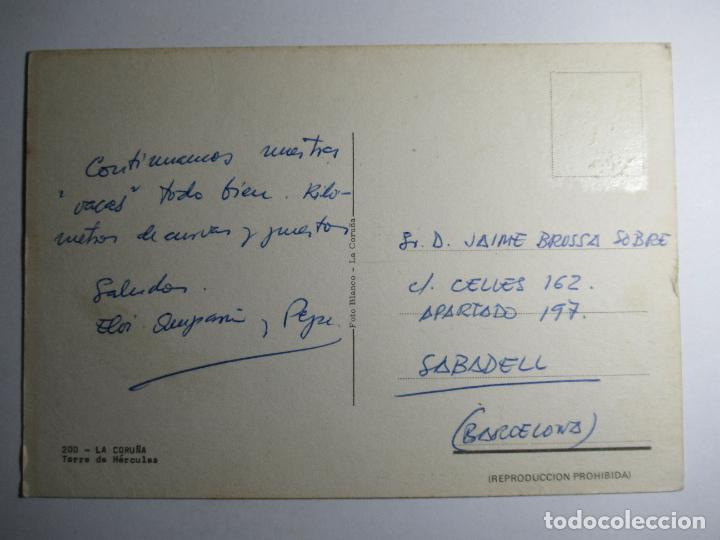 Continuamos nuestras
"vacas" todo bien. Kilo-
metros de curvas y puertos
Saludos.
Eloi Amparin y Pepe.
200 - LA CORUÑA
Torre de Hércules
Foto Blanco - La Coruña
Sr. D. JAIME BROSSA SOBRE
c/. CELLES 162.
APARTADO 197.
SABADELL
(BARCELONA)
(REPRODUCCION PROHIBIDA)
todocoleccion.net